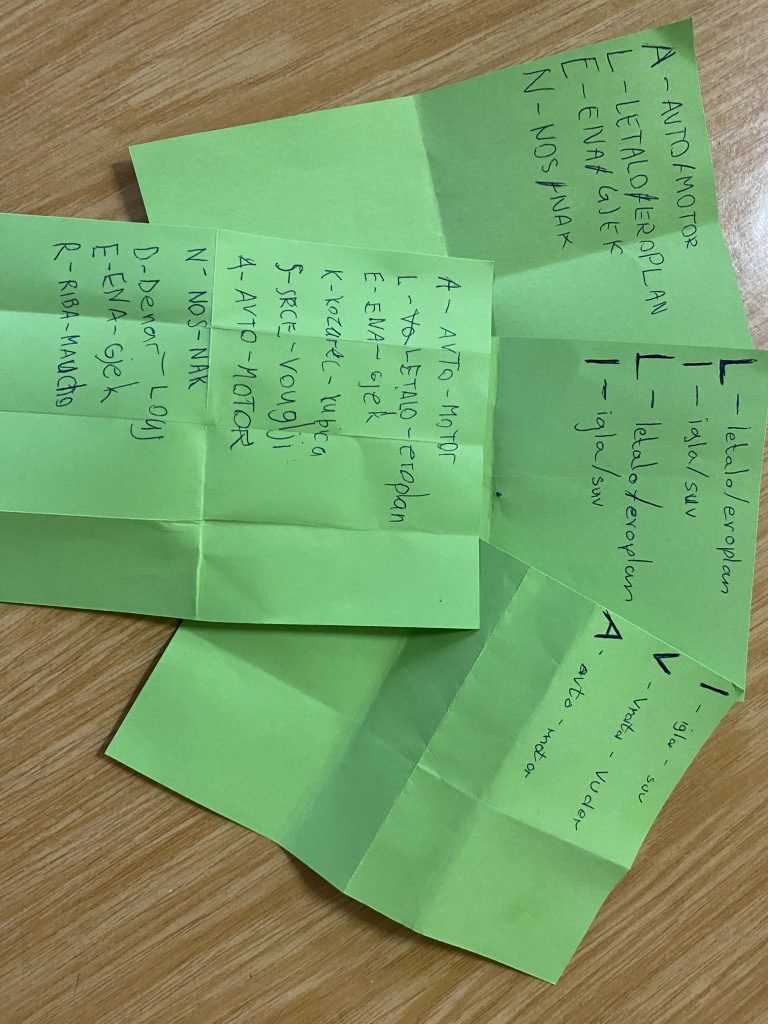 A - AVTO/MOTOR
L - LETALO/EROPLAN
E - ENA/GJEK
N - NOS/NAK
L - letalo/eroplan
I - igla/suv
L - letalo/eroplan
I - igla/suv
I - igla - suv
V - vrata - vudar
A - avto - motor
A - AVTO - MOTOR
L - LETALO - eroplan
E - ENA - Gjek
K - kozarec - kupica
S - SRCE - vougji
A - AVTO - MOTOR
N - NOS - NAK
D - Denar - Louj
E - ENA - Gjek
R - RIBA - MAucho